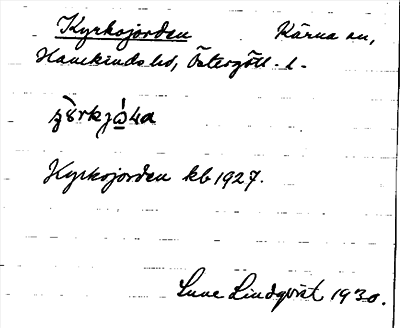 Kyrkojorden Kärna sn,
Hanekinds hd, Östergötl. l.
Kyrkojorden kb 1927.
Sune Lindqvist 1930.